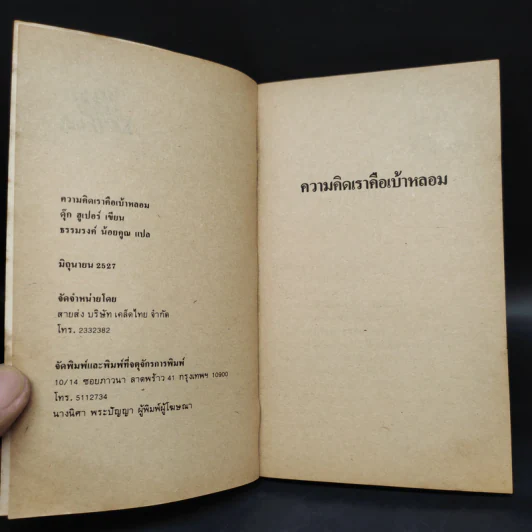 ความคิดเราคือเบ้าหลอม
ดุ๊ก สูเปอร์ เขียน
ธรรมรงค์ น้อยคูณ แปล
มิถุนายน 2527
จัดจำหน่ายโดย
สายส่ง บริษัท เคล็ดไทย จำกัด
โทร. 2332382
จัดพิมพ์และพิมพ์ที่จตุจักรการพิมพ์
10/14 ซอยภาวนา ลาดพร้าว 41 กรุงเทพฯ 10900
โทร. 5112734
นางนิศา พระปัญญา ผู้พิมพ์ผู้โฆษณา
ความคิดเราคือเบ้าหลอม